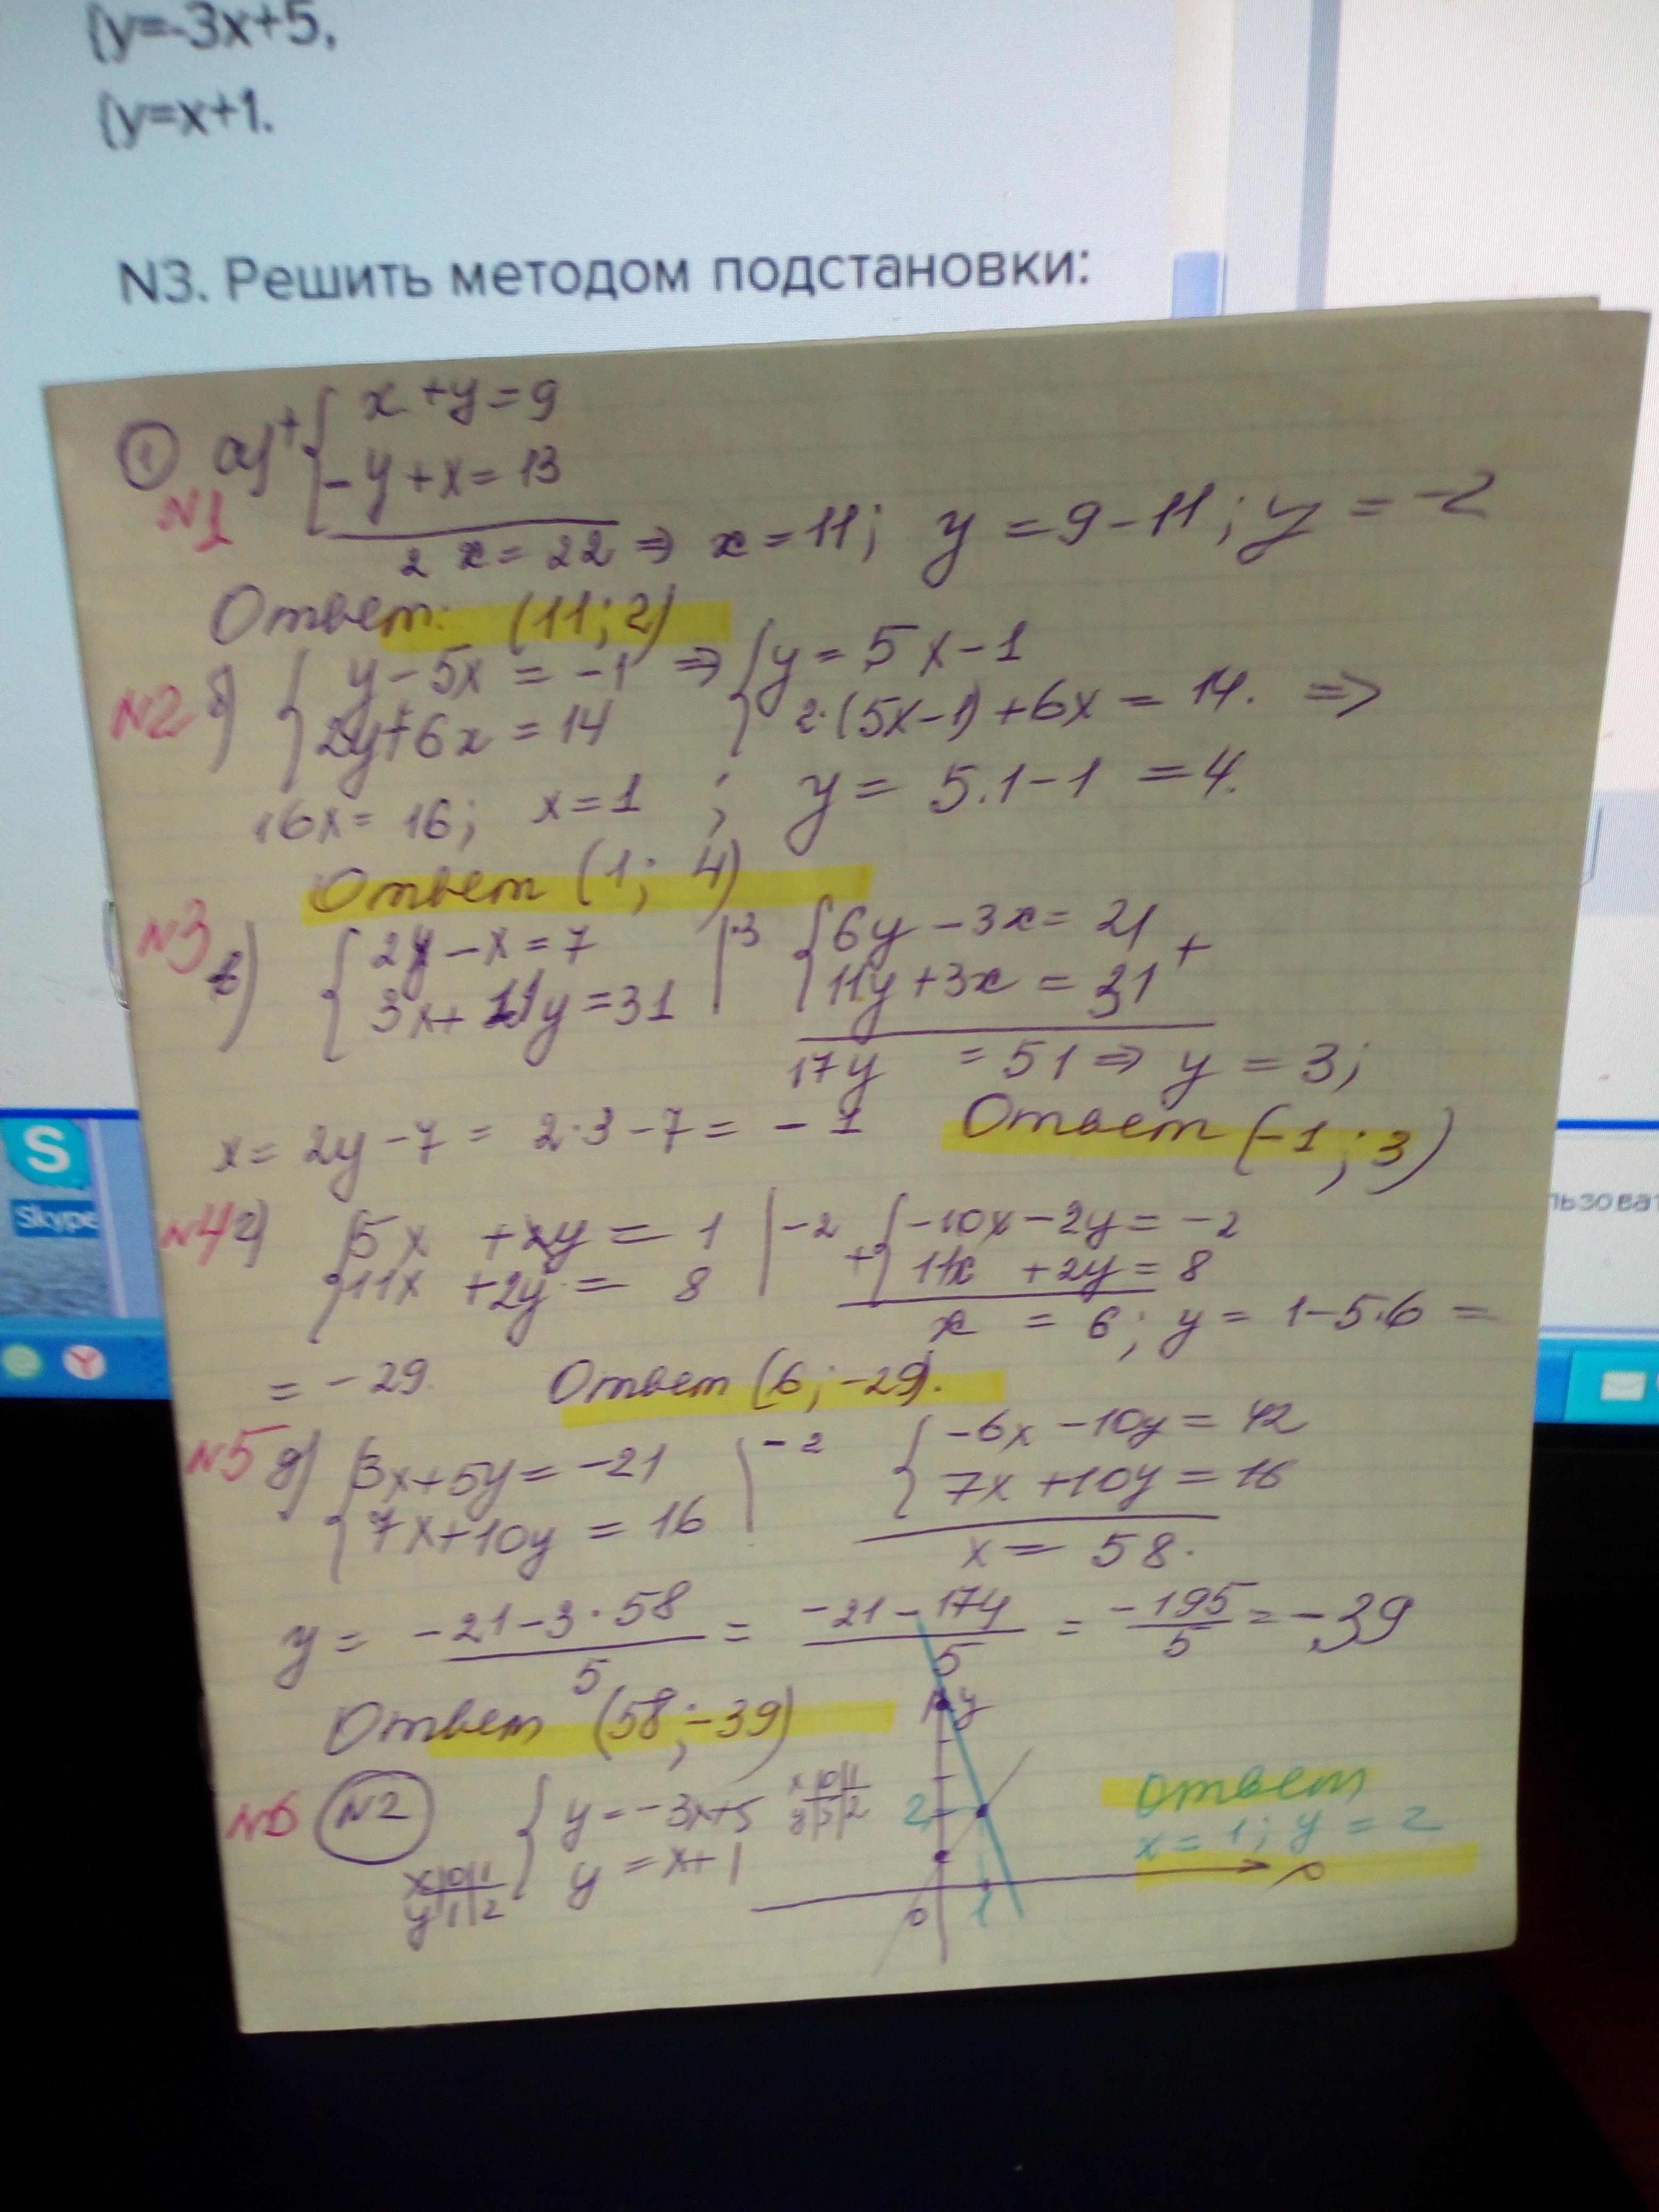 {y=-3x+5,
{y=x+1.
N3. Решить методом подстановки:
① а) + { x + y = 9
- y + x = 13
N1
2 x = 22 ⇒ x = 11; y = 9 - 11; y = -2
Ответ: (11; 2)
N2 б) { y - 5x = -1 ⇒ { y = 5x - 1
2y + 6x = 14 2·(5x-1) + 6x = 14. ⇒
16x = 16; x = 1 ; y = 5.1 - 1 = 4.
Ответ (1; 4)
N3 в) { 2y - x = 7 | ·3 { 6y - 3x = 21
3x + 11y = 31 11y + 3x = 31 +
17y = 51 ⇒ y = 3;
x = 2y - 7 = 2·3 - 7 = -1 Ответ (-1; 3)
N4 г) { 5x + y = 1 | -2 + { -10x - 2y = -2
11x + 2y = 8 11x + 2y = 8
x = 6; y = 1 - 5·6 =
= -29. Ответ (6; -29).
N5 д) { 3x + 5y = -21 | -2 { -6x - 10y = 42
7x + 10y = 16 7x + 10y = 16
x = 58.
y = (-21 - 3·58)/5 = (-21 - 174)/5 = -195/5 = -39
Ответ (58; -39)
N6 N2 { y = -3x + 5 x|0|1
y|5|2
y = x + 1
x|0|1
y|1|2
y
2
0
1
Ответ
x = 1; y = 2
S
Skype
Y
льзоват